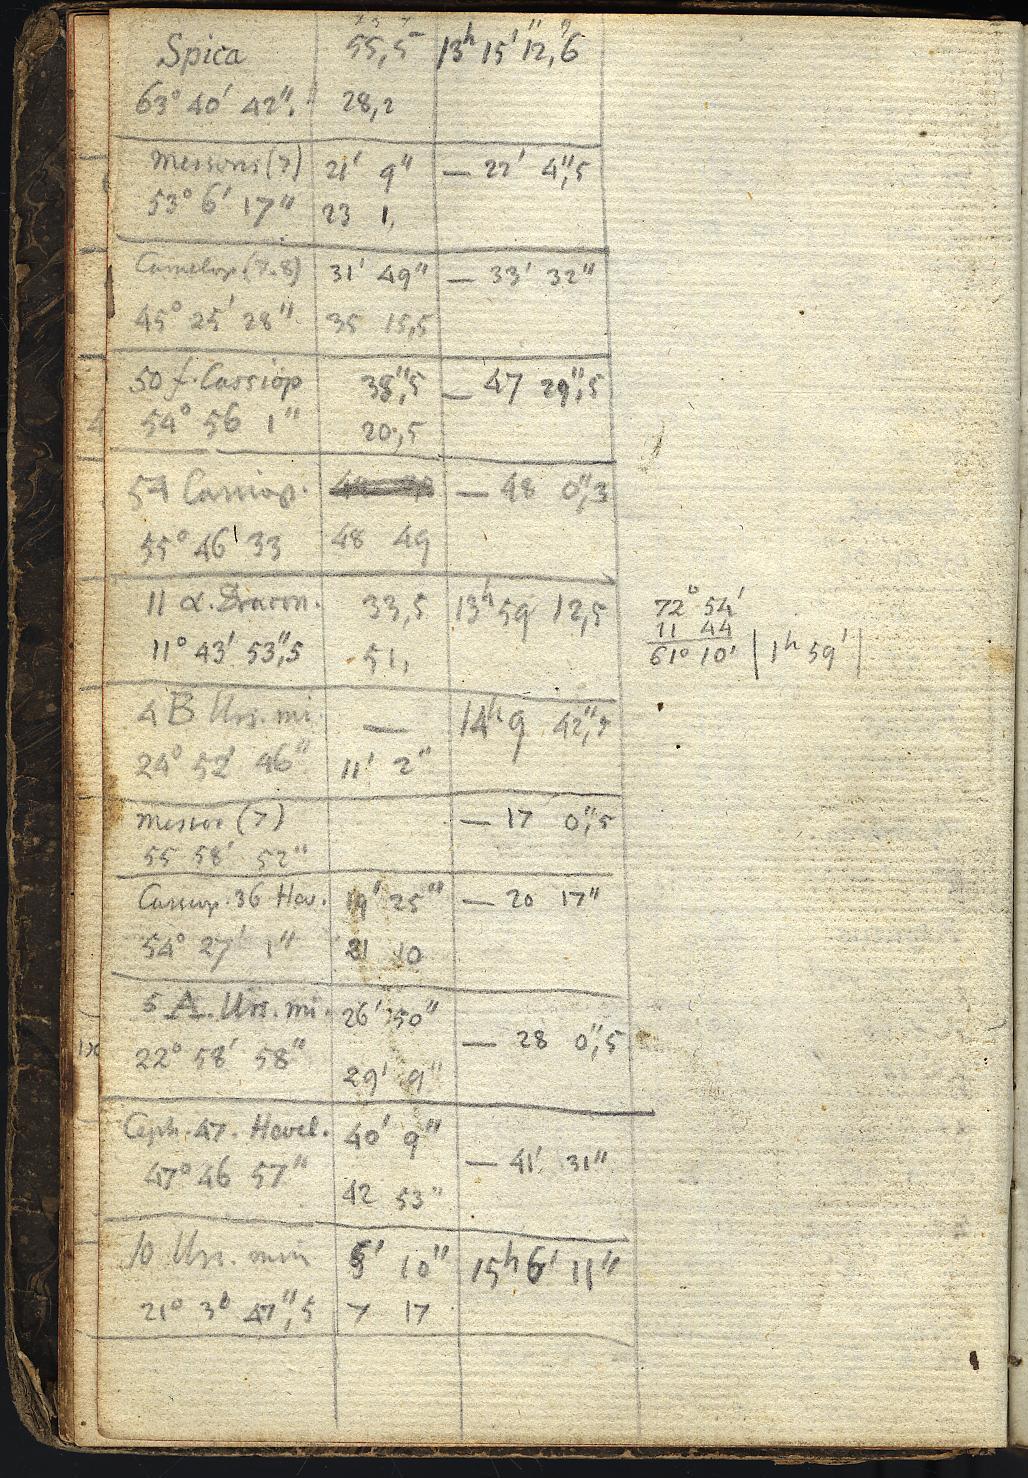 Spica 55,5 13h 15' 12",6
63° 40' 42". 28,2
Messoris (7) 21' 9" — 22' 4",5
53° 6' 17" 23 1,
Camelop. (7.8) 31' 49" — 33' 32"
45° 25' 28" 35 15,5
50 f. Cassiop 38",5 — 47 29",5
54° 56 1" 20,5
Cassiop. — 48 0",3
55° 46' 33 48 49
11 α. Dracon. 33,5 13h 59 12,5
11° 43' 53",5 51,
72° 54'
11 44
61° 10' | 1h 59' |
4 B Urs. mi — 14h 9 42"
24° 52' 46" 11' 2"
Messor (7) — 17 0",5
55 58' 52"
Cassiop. 36 Hev. 19' 25" — 20 17"
54° 27' 1" 21 10
5 A. Urs. mi. 26' 50" — 28 0",5
22° 58' 58" 29' 9"
Ceph. 47. Hevel. 40' 9" — 41' 31"
47° 46 57" 42 53"
10 Urs. min 5' 10" 15h 6' 11"
21° 47",5 7 17